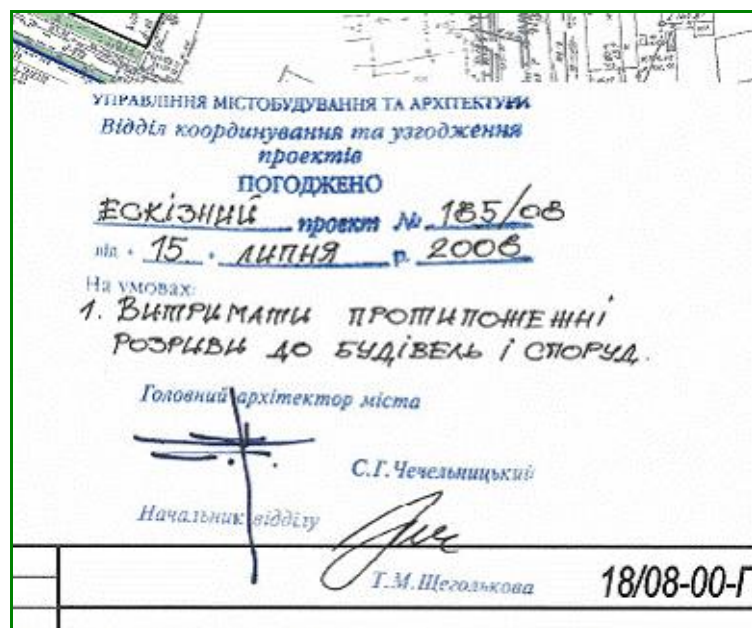 УПРАВЛІННЯ МІСТОБУДУВАННЯ ТА АРХІТЕКТУРИ
Відділ координування та узгодження
проектів
ПОГОДЖЕНО
ЕСКІЗНИЙ проект № 185/08
від " 15 " липня р. 2008
На умовах:
1. Витримати протипожежні
розриви до будівель і споруд.
Головний архітектор міста
С.Г.Чечельницький
Начальник відділу
Т.М.Щеголькова
18/08-00-Г